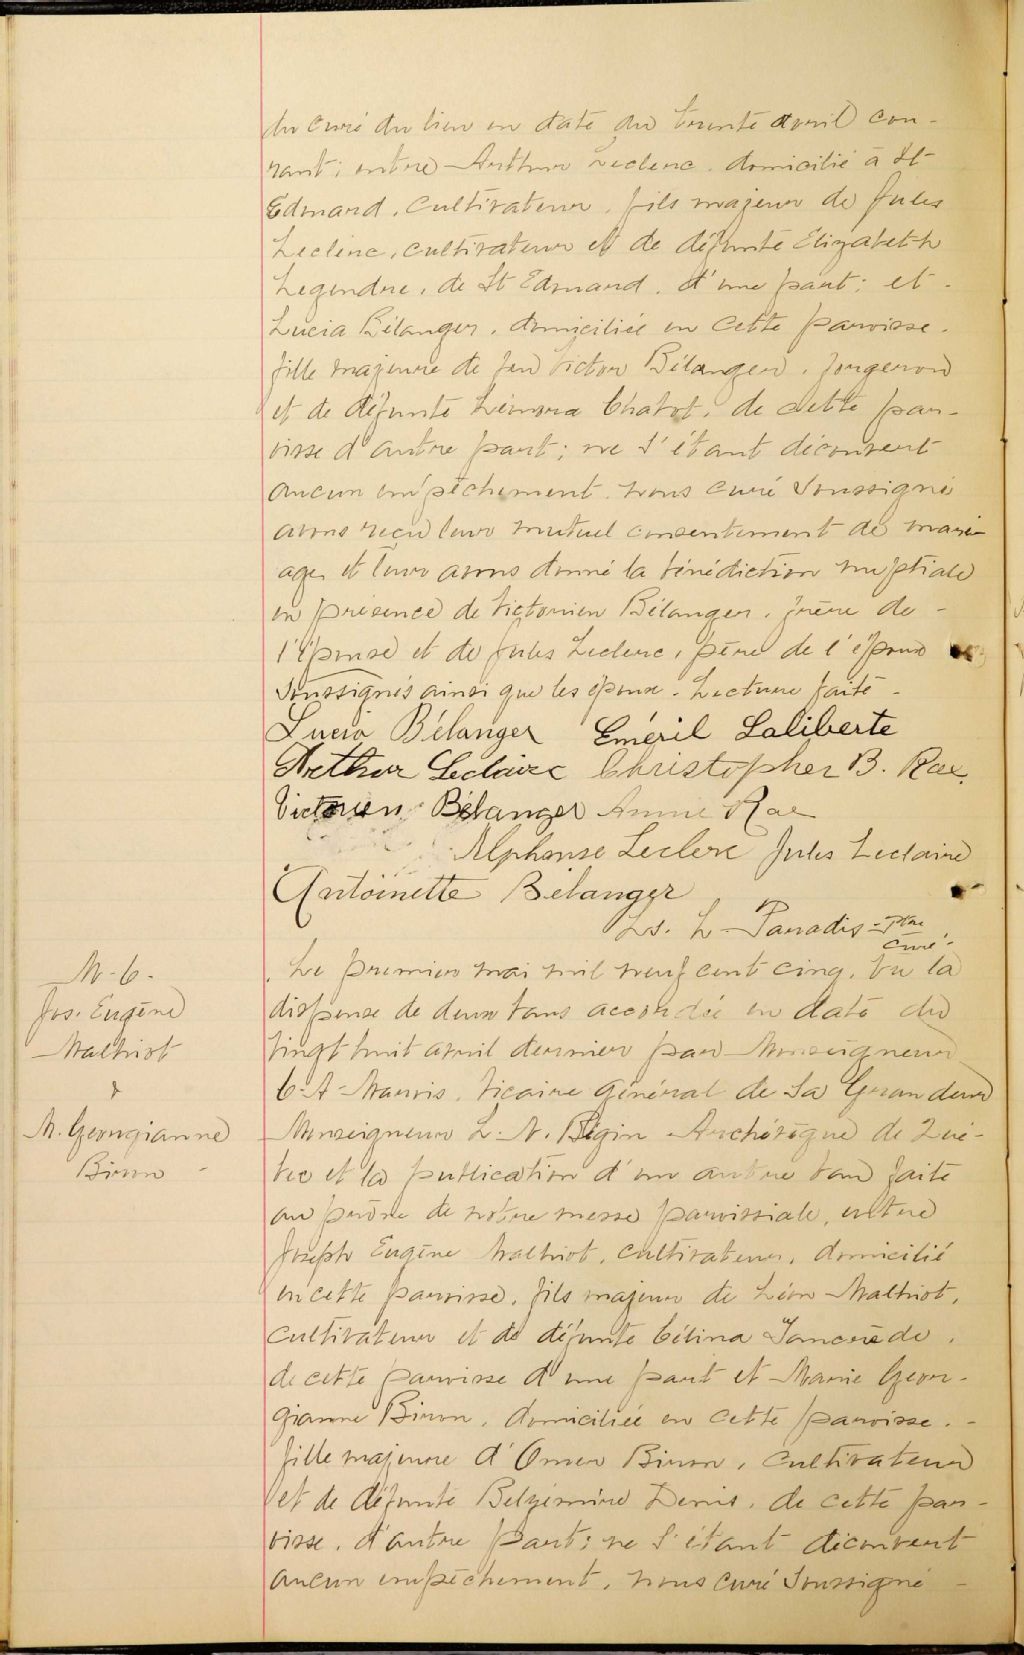 du curé du lieu en date du trente avril cou-
rant; entre Arthur Leclerc, domicilié à St
Edmond, cultivateur, fils majeur de Jules
Leclerc, cultivateur et de défunte Elizabeth
Legendre, de St Edmond, d'une part; et -
Lucia Bélanger, domiciliée en cette paroisse,
fille majeure de feu Victor Bélanger, forgeron
et de défunte Chabot, de cette par-
oisse d'autre part; ne s'étant découvert
aucun empêchement, nous curé soussigné
avons reçu leur mutuel consentement de mari-
age et leur avons donné la bénédiction nuptiale
en présence de Victorien Bélanger, frère de -
l'épouse et de Jules Leclerc, père de l'époux
soussignés ainsi que les époux. Lecture faite -
Lucia Bélanger Eméril Laliberte
Arthur Leclairc Christopher B. Rae,
Victorien Bélanger Annie Rae
Alphonse Leclerc Jules Leclaire
Antoinette Bélanger
Ls. L. Paradis - Ptre
curé -
M-6-
Jos. Eugène
Malhiot
&
M. Georgianne
Biron -
Le premier mai mil neuf cent cinq, vu la
dispense de deux bans accordée en date du
vingt huit avril dernier par Monseigneur
C-A-Marois, vicaire général de Sa Grandeur
Monseigneur L. N. Bégin Archévêque de Qué-
bec et la publication d'un autre ban faite
au prône de notre messe paroissiale, entre
Joseph Eugène Malhiot, cultivateur, domicilié
en cette paroisse, fils majeur de Léon Malhiot,
cultivateur et de défunte Célina Tancrède,
de cette paroisse d'une part et Marie Geor-
gianne Biron, domiciliée en cette paroisse, -
fille majeure d'Omer Biron, cultivateur
et de défunte Belzémire Denis, de cette par-
oisse, d'autre part; ne s'étant découvert
aucun empêchement, nous curé soussigné -